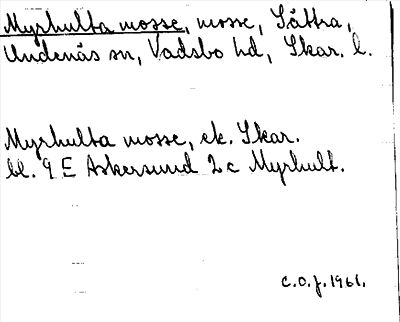 Myrhulta mosse, mosse, Sätra,
Undenäs sn, Vadsbo hd, Skar. l.
Myrhulta mosse, ek. Skar.
bl. 9 E Askersund 2c Myrhult.
C.O.f. 1961.